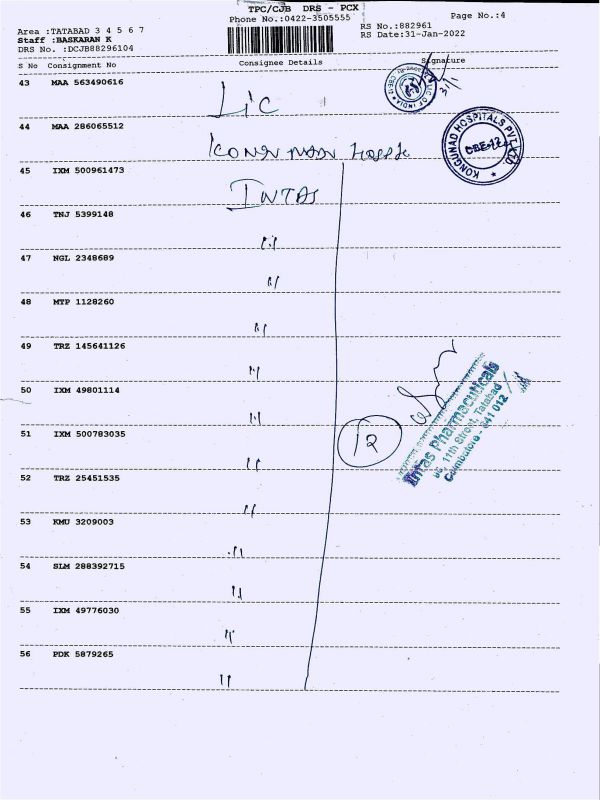 TPC/CJB DRS - PCX
Phone No.:0422-3505555
Page No.:4
Area :TATABAD 3 4 5 6 7
RS No.:882961
Staff :BASKARAN K
RS Date:31-Jan-2022
DRS No. :DCJB88296104
S No Consignment No Consignee Details Signature
43 MAA 563490616 LIC
44 MAA 286065512
KONGUNAD HOSPITALS PVT. LTD.
CBE-12
45 IXM 500961473 INTAS
46 TNJ 5399148 "
47 NGL 2348689 "
48 MTP 1128260 "
49 TRZ 145641126 "
50 IXM 49801114 "
51 IXM 500783035 "
12
Intas Pharmaceuticals
11th Street, Tatabad
Coimbatore - 641 012
52 TRZ 25451535 "
53 KMU 3209003 "
54 SLM 288392715 "
55 IXM 49776030 "
56 PDK 5879265 "